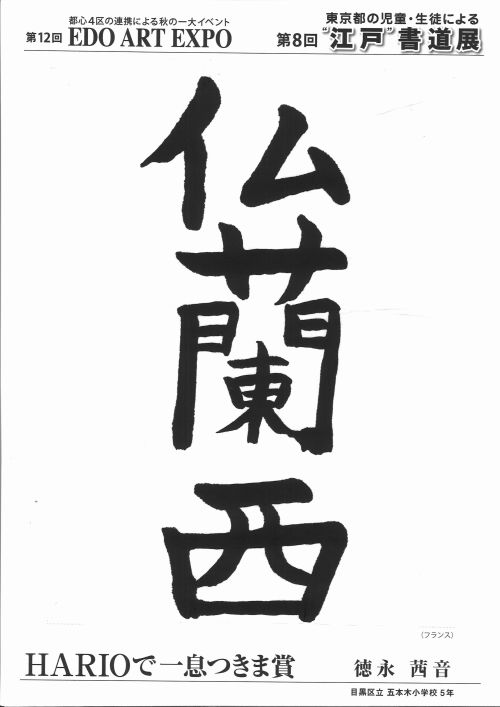 都心4区の連携による秋の一大イベント
第12回 EDO ART EXPO
東京都の児童・生徒による
第8回 "江戸"書道展
仏蘭西
（フランス）
HARIOで一息つきま賞
徳永 茜音
目黒区立 五本木小学校 5年